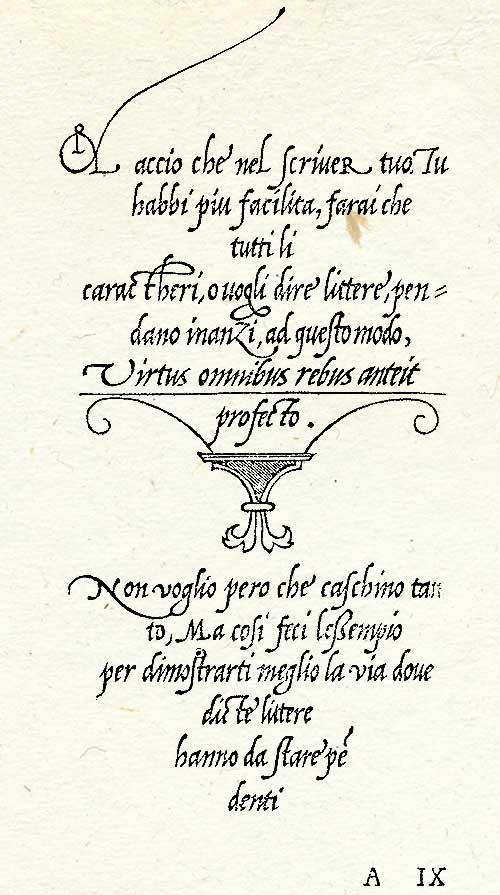 OL accio che nel scriver tuo. Tu
habbi piu facilita, farai che
tutti li
caractheri, o vogli dire littere, pen=
dano inanzi, ad questo modo,
Virtus omnibus rebus anteit
profecto.
Non voglio pero che caschino tan
to, Ma cosi feci lessempio
per dimostrarti meglio la via dove
dicte littere
hanno da stare pē
denti
A IX